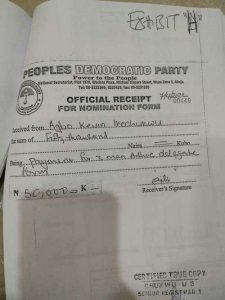 EXHIBIT "A"
PEOPLES DEMOCRATIC PARTY
Power to the People
National Secretariat, Plot 1970, Wadata Plaza, Michael Okpara Street, Wuse Zone 5, Abuja.
OFFICIAL RECEIPT
FOR NOMINATION FORM
Received from Agbo Kevin
the sum of Fifty thousand
Naira Kobo
Being Payment for 3 man Adhoc delegate
form
₦ 50,000 = K -
Receiver's Signature
CERTIFIED TRUE COPY
CHUKWU U.S
SENIOR REGISTRAR I